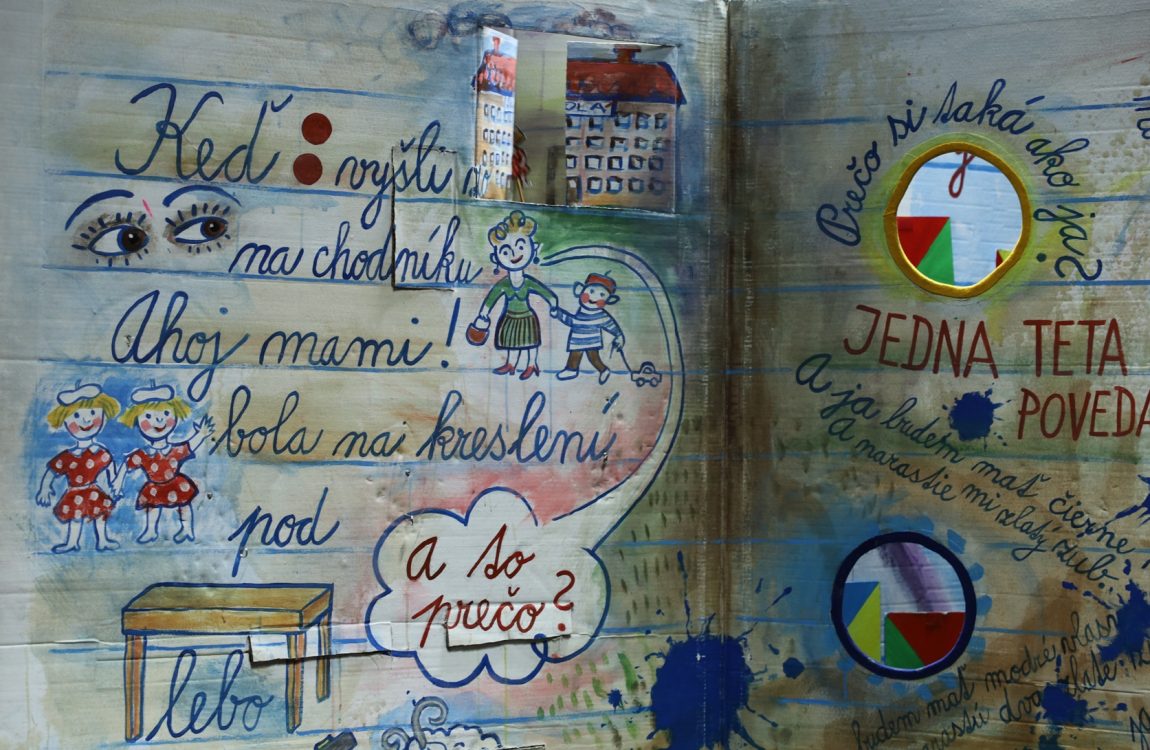 Keď : vyšli zo
na chodníku
Ahoj mami!
bola na kreslení
pod
lebo
a to
prečo?
Prečo si taká ako ja?
JEDNA TETA
POVEDA
A ja budem mať čierne
A narastie mi zlatý zub
budem mať modré vlasy